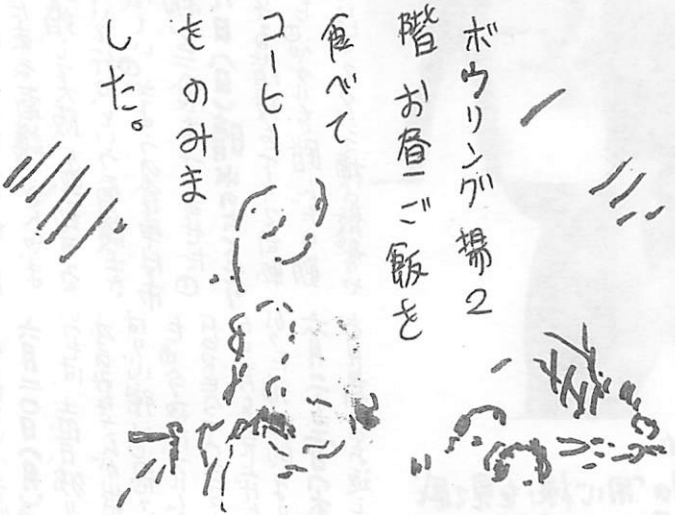 ボウリング場2
階お昼ご飯を
食べて
コーヒー
をのみま
した。